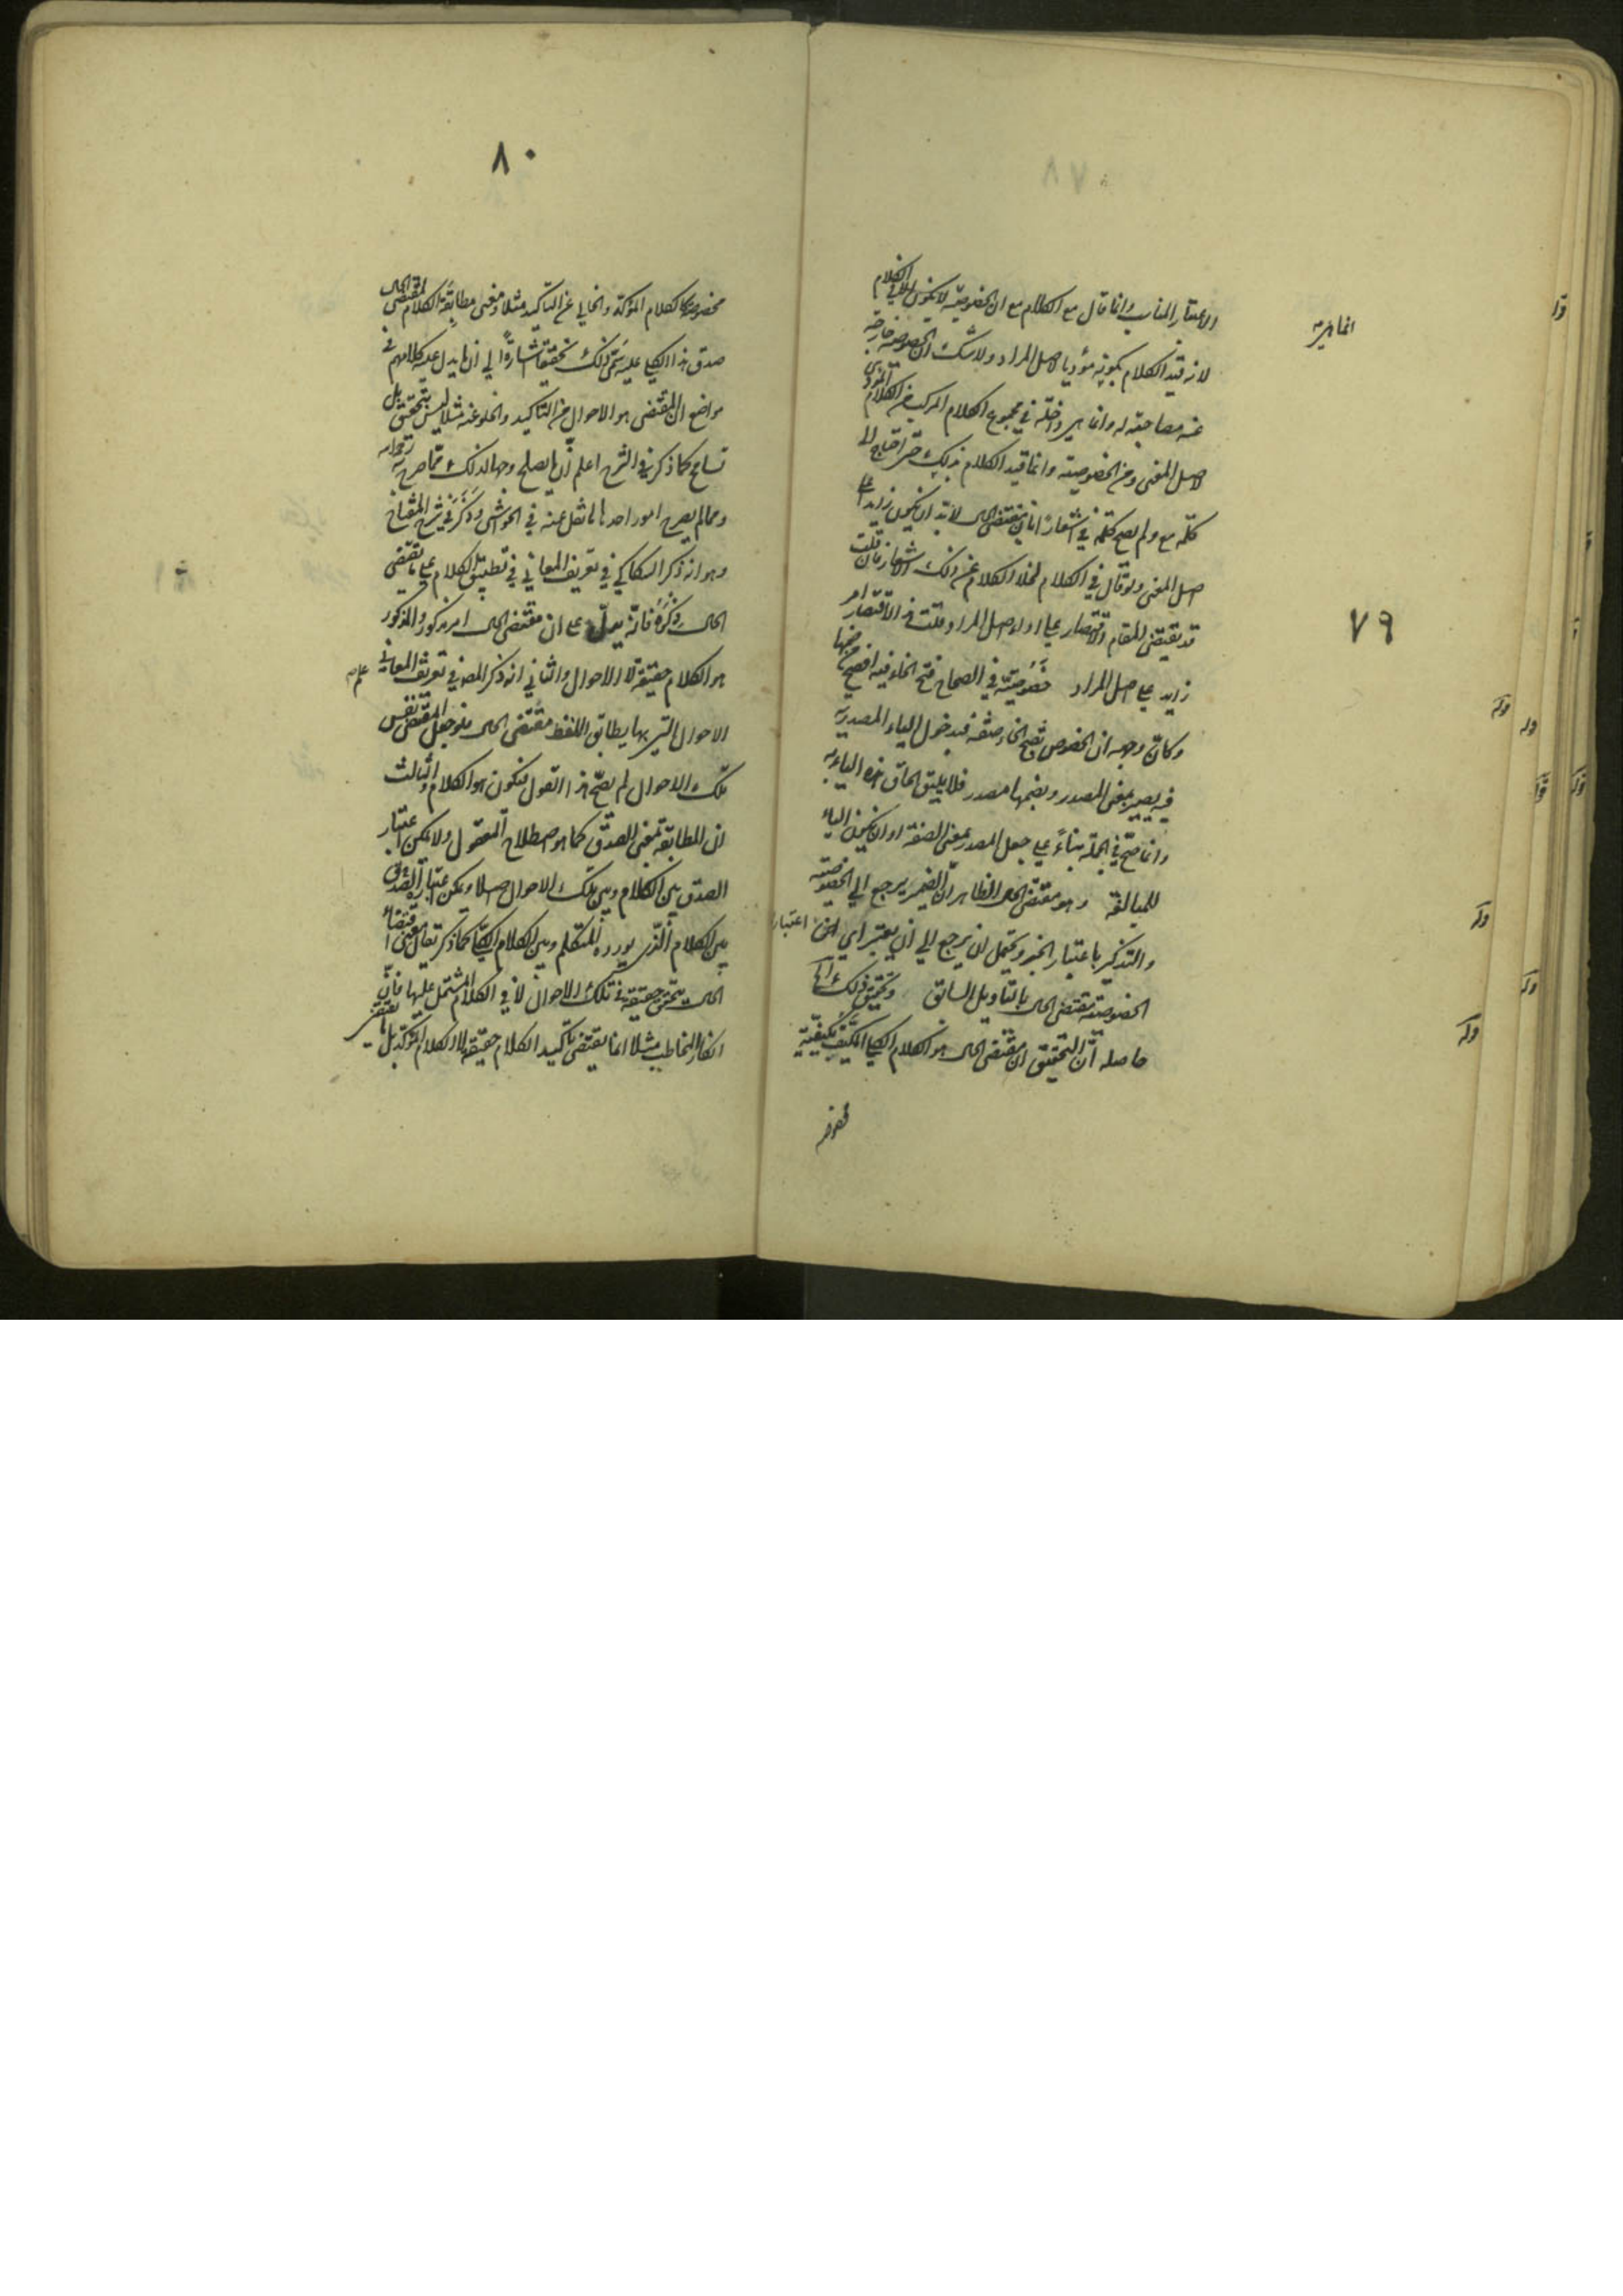 الاعتبار المناسب وانما قال مع الكلام مع ان الخصوصية لا يكون الا في الكلام
لانه قيد الكلام بكونه مؤديا لاصل المراد ولا شك ان الخصوصية خارجة
عنه مصاحبة له وانما هي داخلة في مجموع الكلام المركب من الكلام المؤدى به
لاصل المعنى ومن الخصوصية وانما قيد الكلام بذلك حتى احتاج الى
كلمة مع ولم يصح كلمة في اشعارا بان مقتضى الحال لا بد ان يكون زايدا على
اصل المعنى ولو قال في الكلام لخلا الكلام عن ذلك الاشعار فان قلت
قد يقتضى المقام الاقتصار على اداء اصل المراد قلت فالاقتصار امر
زايد على اصل المراد خصوصية في الصحاح فتح الخاء فيه افصح من ضمها
وكان وجهه ان الخصوص بفتح الخاء صفة فبدخول الياء المصدرية
فيه يصير بمعنى المصدر وبضمها مصدر فلا يليق الحاق هذه الياء به
وانما صح في الجملة بناءً على جعل المصدر بمعنى الصفة او ان يكون الياء
للمبالغة وهو مقتضى الحال الظاهر ان الضمير يرجع الى الخصوصية
والتذكير باعتبار الخبر ويحتمل ان يرجع الى ان يعتبر اي اعتبار
الخصوصية مقتضى الحال بالتاويل السابق وتحقيق ذلك
حاصله ان التحقيق ان مقتضى الحال هو الكلام الكلي المكيف بكيفية
٧٩
٨٠
مخصوصة كالكلام المؤكد والخالي عن التاكيد مثلا ومعنى مطابقة الكلام لمقتضى الحال
صدق هذا الكلي عليه سمى ذلك تحقيقا اشارة الى ان ما يدل عليه كلامهم في
مواضع ان المقتضى هو الاحوال من التاكيد والخلو عنه مثلا ليس بتحقيق بل
تسامح كما ذكره في الشرح اعلم ان ما يصلح وجها لذلك مما صرح به
ومما لم يصرح امور احدها ما نقل عنه في الحواشي وذكر في شرح المفتاح
وهو انه ذكر السكاكي في تعريف المعاني في تطبيق الكلام على ما يقتضى
الحال ذكره فانه يدل على ان مقتضى الحال امر مذكور والمذكور
هو الكلام حقيقة لا الاحوال والثاني انه ذكر المصنف في تعريف علم المعاني
الاحوال التي بها يطابق اللفظ مقتضى الحال فلو جعل المقتضى نفس
تلك الاحوال لم يصح هذا القول فتكون هو الكلام والثالث
ان المطابقة بمعنى الصدق كما هو اصطلاح المعقول ولا يمكن اعتبار
الصدق بين الكلام وبين تلك الاحوال اصلا ويمكن اعتبار الصدق
بين الكلام الذي يورده المتكلم وبين الكلام الكلي كما ذكر
الحال يتحقق حقيقة في تلك الاحوال لا في الكلام المشتمل عليها فان
انكار المخاطب مثلا انما يقتضى تاكيد الكلام حقيقة لا الكلام المؤكد بل